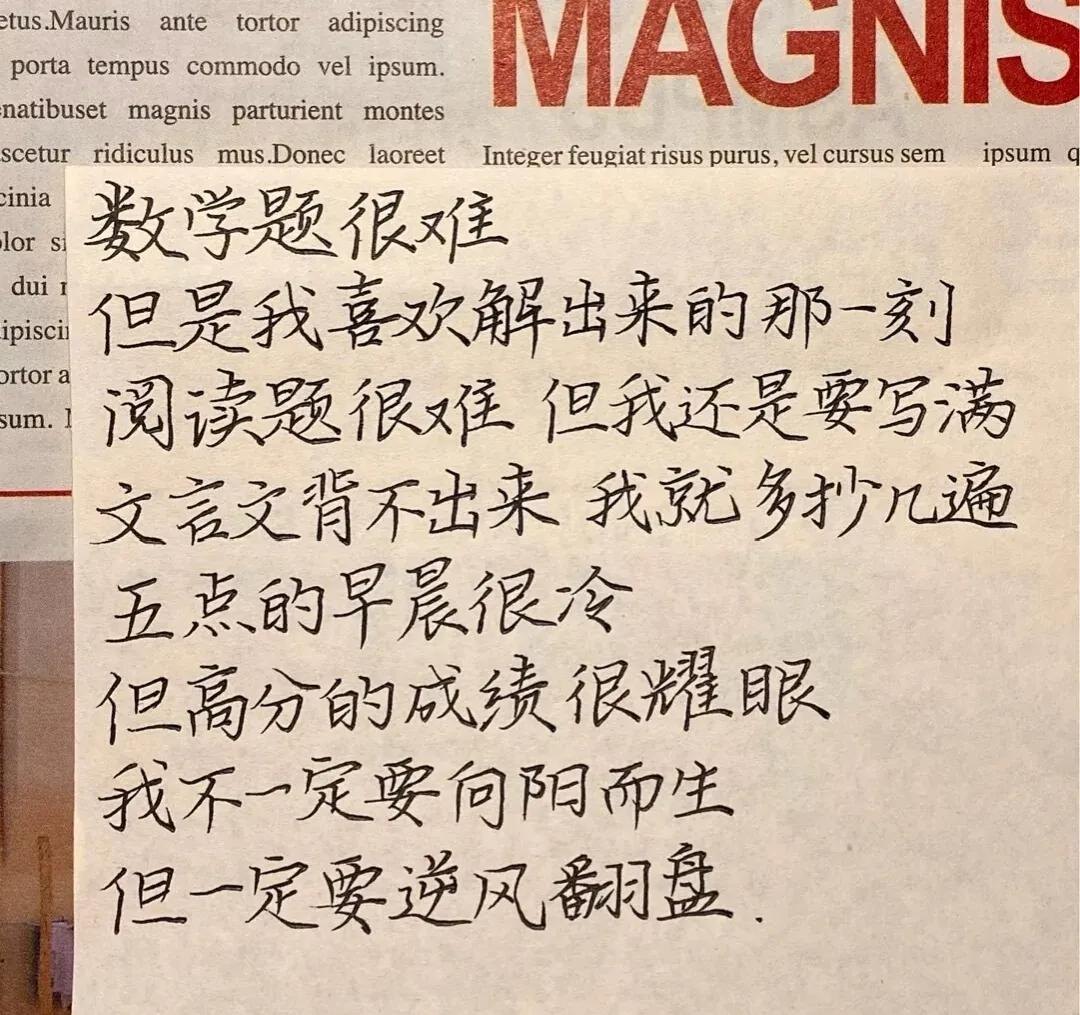 etus.Mauris ante tortor adipiscing
porta tempus commodo vel ipsum.
enatibuset magnis parturient montes
scetur ridiculus mus.Donec laoreet
cinia
olor
dui
ipiscin
ortor a
sum.
MAGNIS
Integer feugiat risus purus, vel cursus sem ipsum q
数学题很难
但是我喜欢解出来的那一刻
阅读题很难 但我还是要写满
文言文背不出来 我就多抄几遍
五点的早晨很冷
但高分的成绩很耀眼
我不一定要向阳而生
但一定要逆风翻盘.